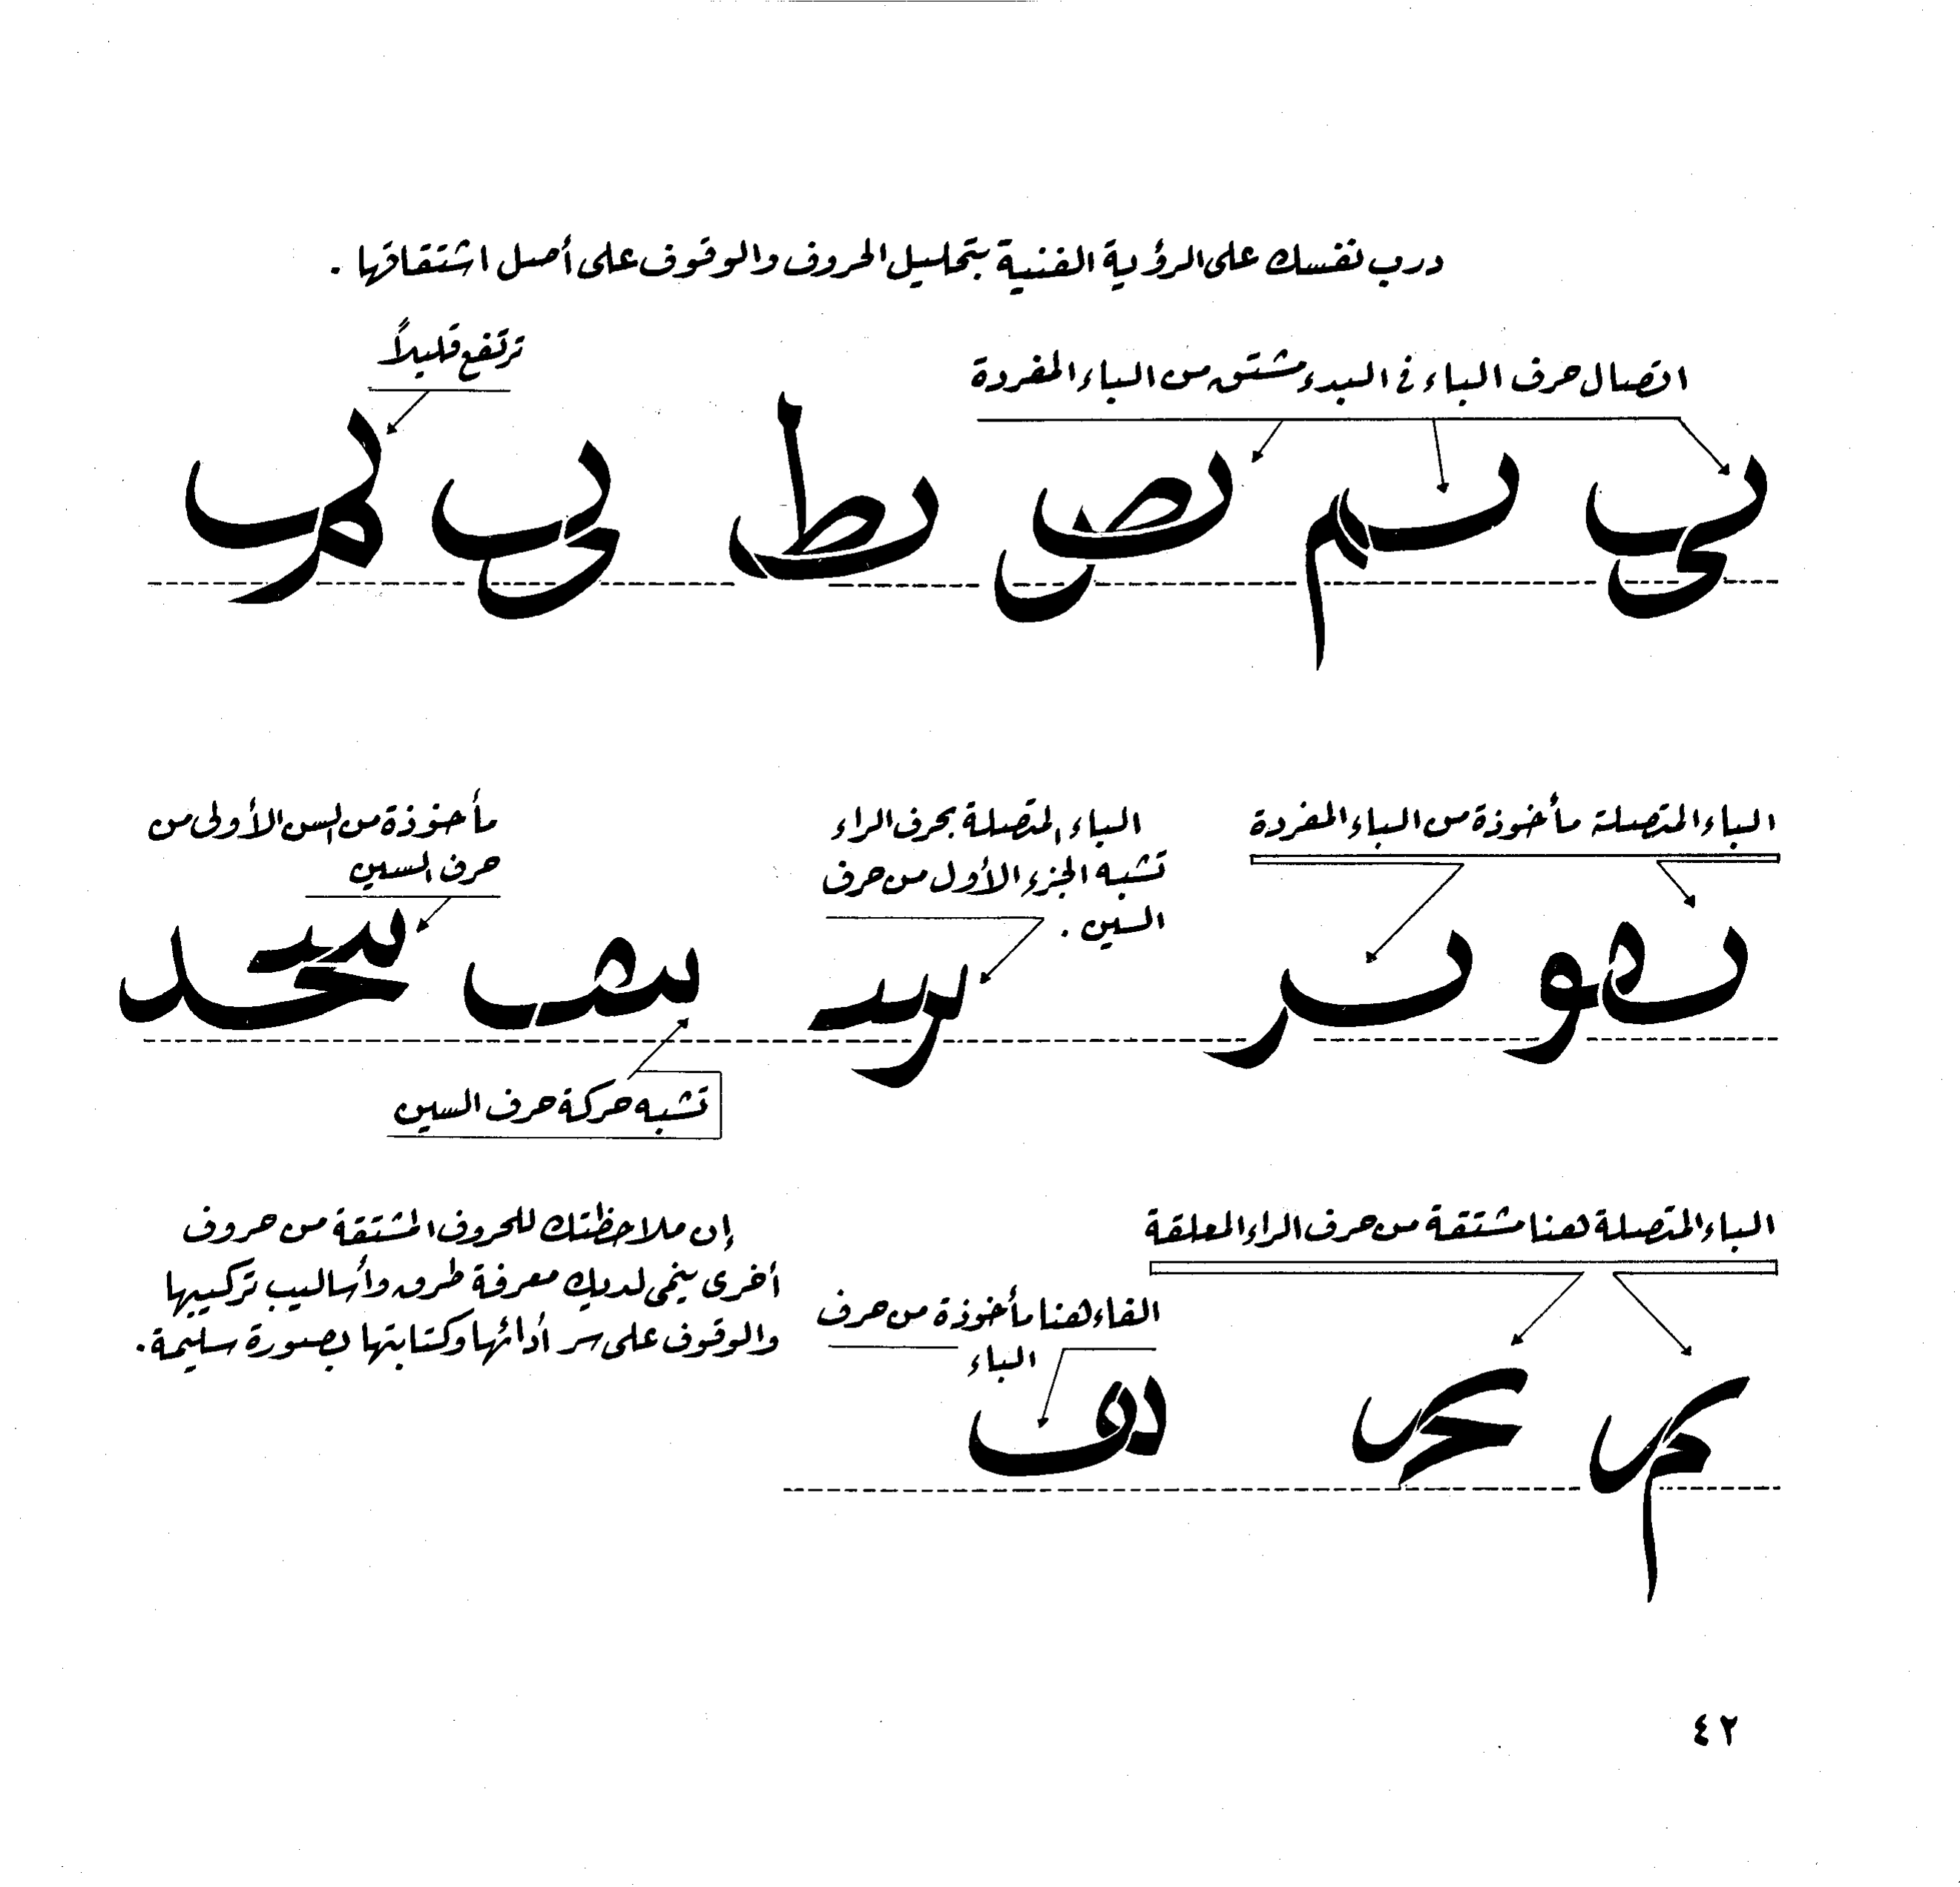 درب نفسك على الرؤية الفنية بتحليل الحروف والوقوف على أصل اشتقاقها .
ترتفع قليلاً
اتصال حرف الباء في البدء مشتق من الباء المفردة
الباء المتصلة مأخوذة من الباء المفردة
الباء المتصلة بحرف الراء
تشبه الجزء الأول من حرف
السين .
مأخوذة من السن الأولى من
حرف السين
تشبه حركة حرف السين
الباء المتصلة هنا مشتقة من حرف الراء المعلقة
الفاء هنا مأخوذة من حرف
الباء
إن ملاحظتك للحروف المشتقة من حروف
أخرى ينمي لديك معرفة طرق وأساليب تركيبها
والوقوف على سر أدائها وكتابتها بصورة سليمة .
٤٢